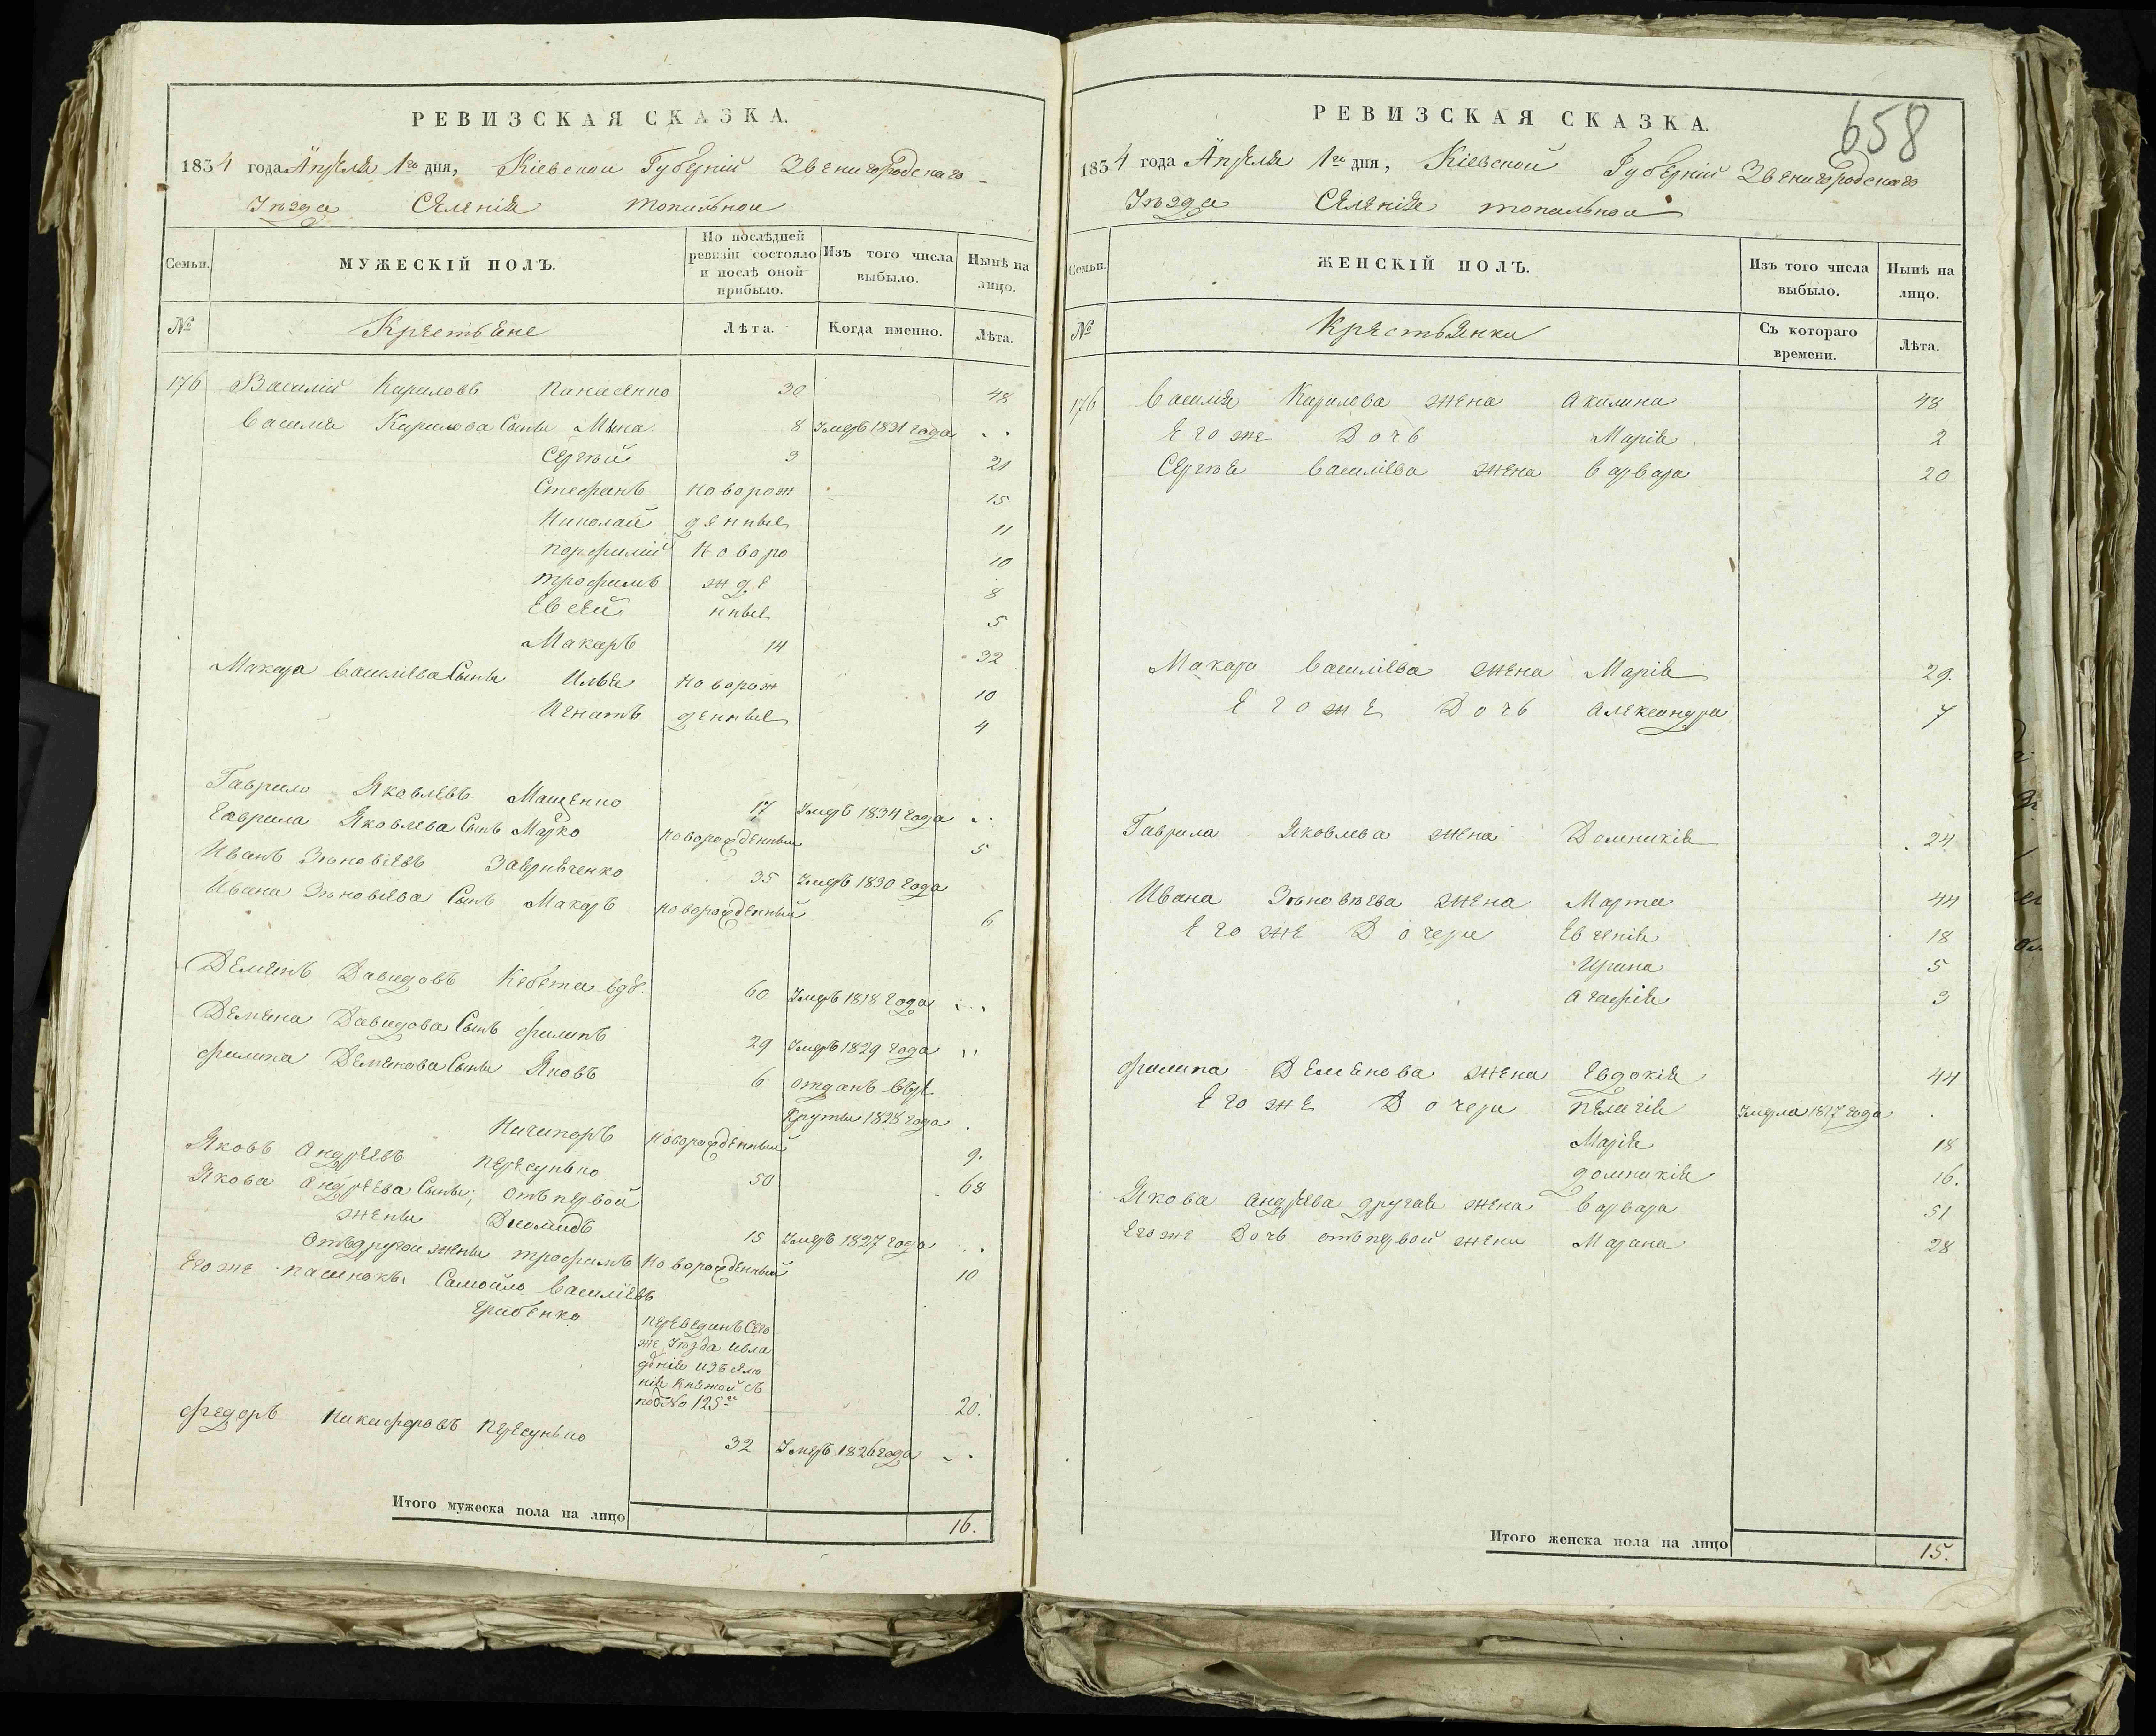 РЕВИЗСКАЯ СКАЗКА.
1834 года Апреля 1го дня, Кіевской Губерніи Звенигородскаго
Уѣзда Селенія топильной
Семьи.
МУЖЕСКІЙ ПОЛЪ.
По послѣдней ревизіи состояло и послѣ оной прибыло.
Изъ того числа выбыло.
Нынѣ на лицо.
№
Крестьяне
Лѣта.
Когда именно.
Лѣта.
176 Василій Кириловъ Панасенко 30 48
Василія Кирилова Сыны Мина 8 Умеръ 1831 года
Сергѣй 3 21
Стефанъ новорож 15
Николай денные 11
Порфилій Новоро 10
трофимъ жде 8
Евсей нные 5
Макаръ 14 32
Макара Василіева Сыны Илья новорож 10
Игнатъ денные 4
Гаврило Яковлевъ Мащенко 17 Умеръ 1834 года
Гаврила Яковлева Сынъ Марко новорожденный 5
Иванъ Зѣновіевъ 35 Умеръ 1830 года
Ивана Зѣновьева Сынъ Макаръ новорожденный 6
Демянъ Давидовъ Кебета вдв. 60 Умеръ 1818 года
Демяна Давидова Сынъ филипъ 29 Умеръ 1829 года
филипа Демянова Сыны Яковъ 6 отданъ врѣ
круты 1828 года
Ничипоръ новорожденный 9.
Яковъ Андреевъ Пересунько 50 68
Якова Андреева Сыны, отъ первой
жены Диомидъ 15 Умеръ 1827 года
отъ другой жены трофимъ новорожденный 10
Его же пасинокъ Самойло Василіевъ
Грибенко
перевединъ Сего
же Уѣзда ивла
денія изъ
нія княжой съ
под № 125го 20.
Федоръ Никифоровъ Пересунько 32 Умеръ 1826 года
Итого мужеска пола на лицо 16.
658
РЕВИЗСКАЯ СКАЗКА.
1834 года Апреля 1го дня, Кіевской Губерніи Звенигородскаго
Уѣзда Селенія топильной
Семьи.
ЖЕНСКІЙ ПОЛЪ.
Изъ того числа выбыло.
Нынѣ на лицо.
№
Крестьянки
Съ котораго времени.
Лѣта.
176 Василія Кирилова жена Акилина 48
Его же Дочь Марія 2
Сергѣя Василіева жена Варвара 20
Макара Василіева жена Марія 29.
Его же Дочь Александра 7
Гаврила Яковлева жена Домникія 24
Ивана Зѣновѣева жена Марта 44
Его же Дочери Евгенія 18
Ирина 5
Агафія 3
филипа Демянова жена Евдокія 44
Его же Дочери Пелагія Умерла 1817 года
Марія 18
домникія 16.
Якова Андреева другая жена Варвара 51
Его же Дочь отъ первой жены Марина 28
Итого женска пола на лицо 15.